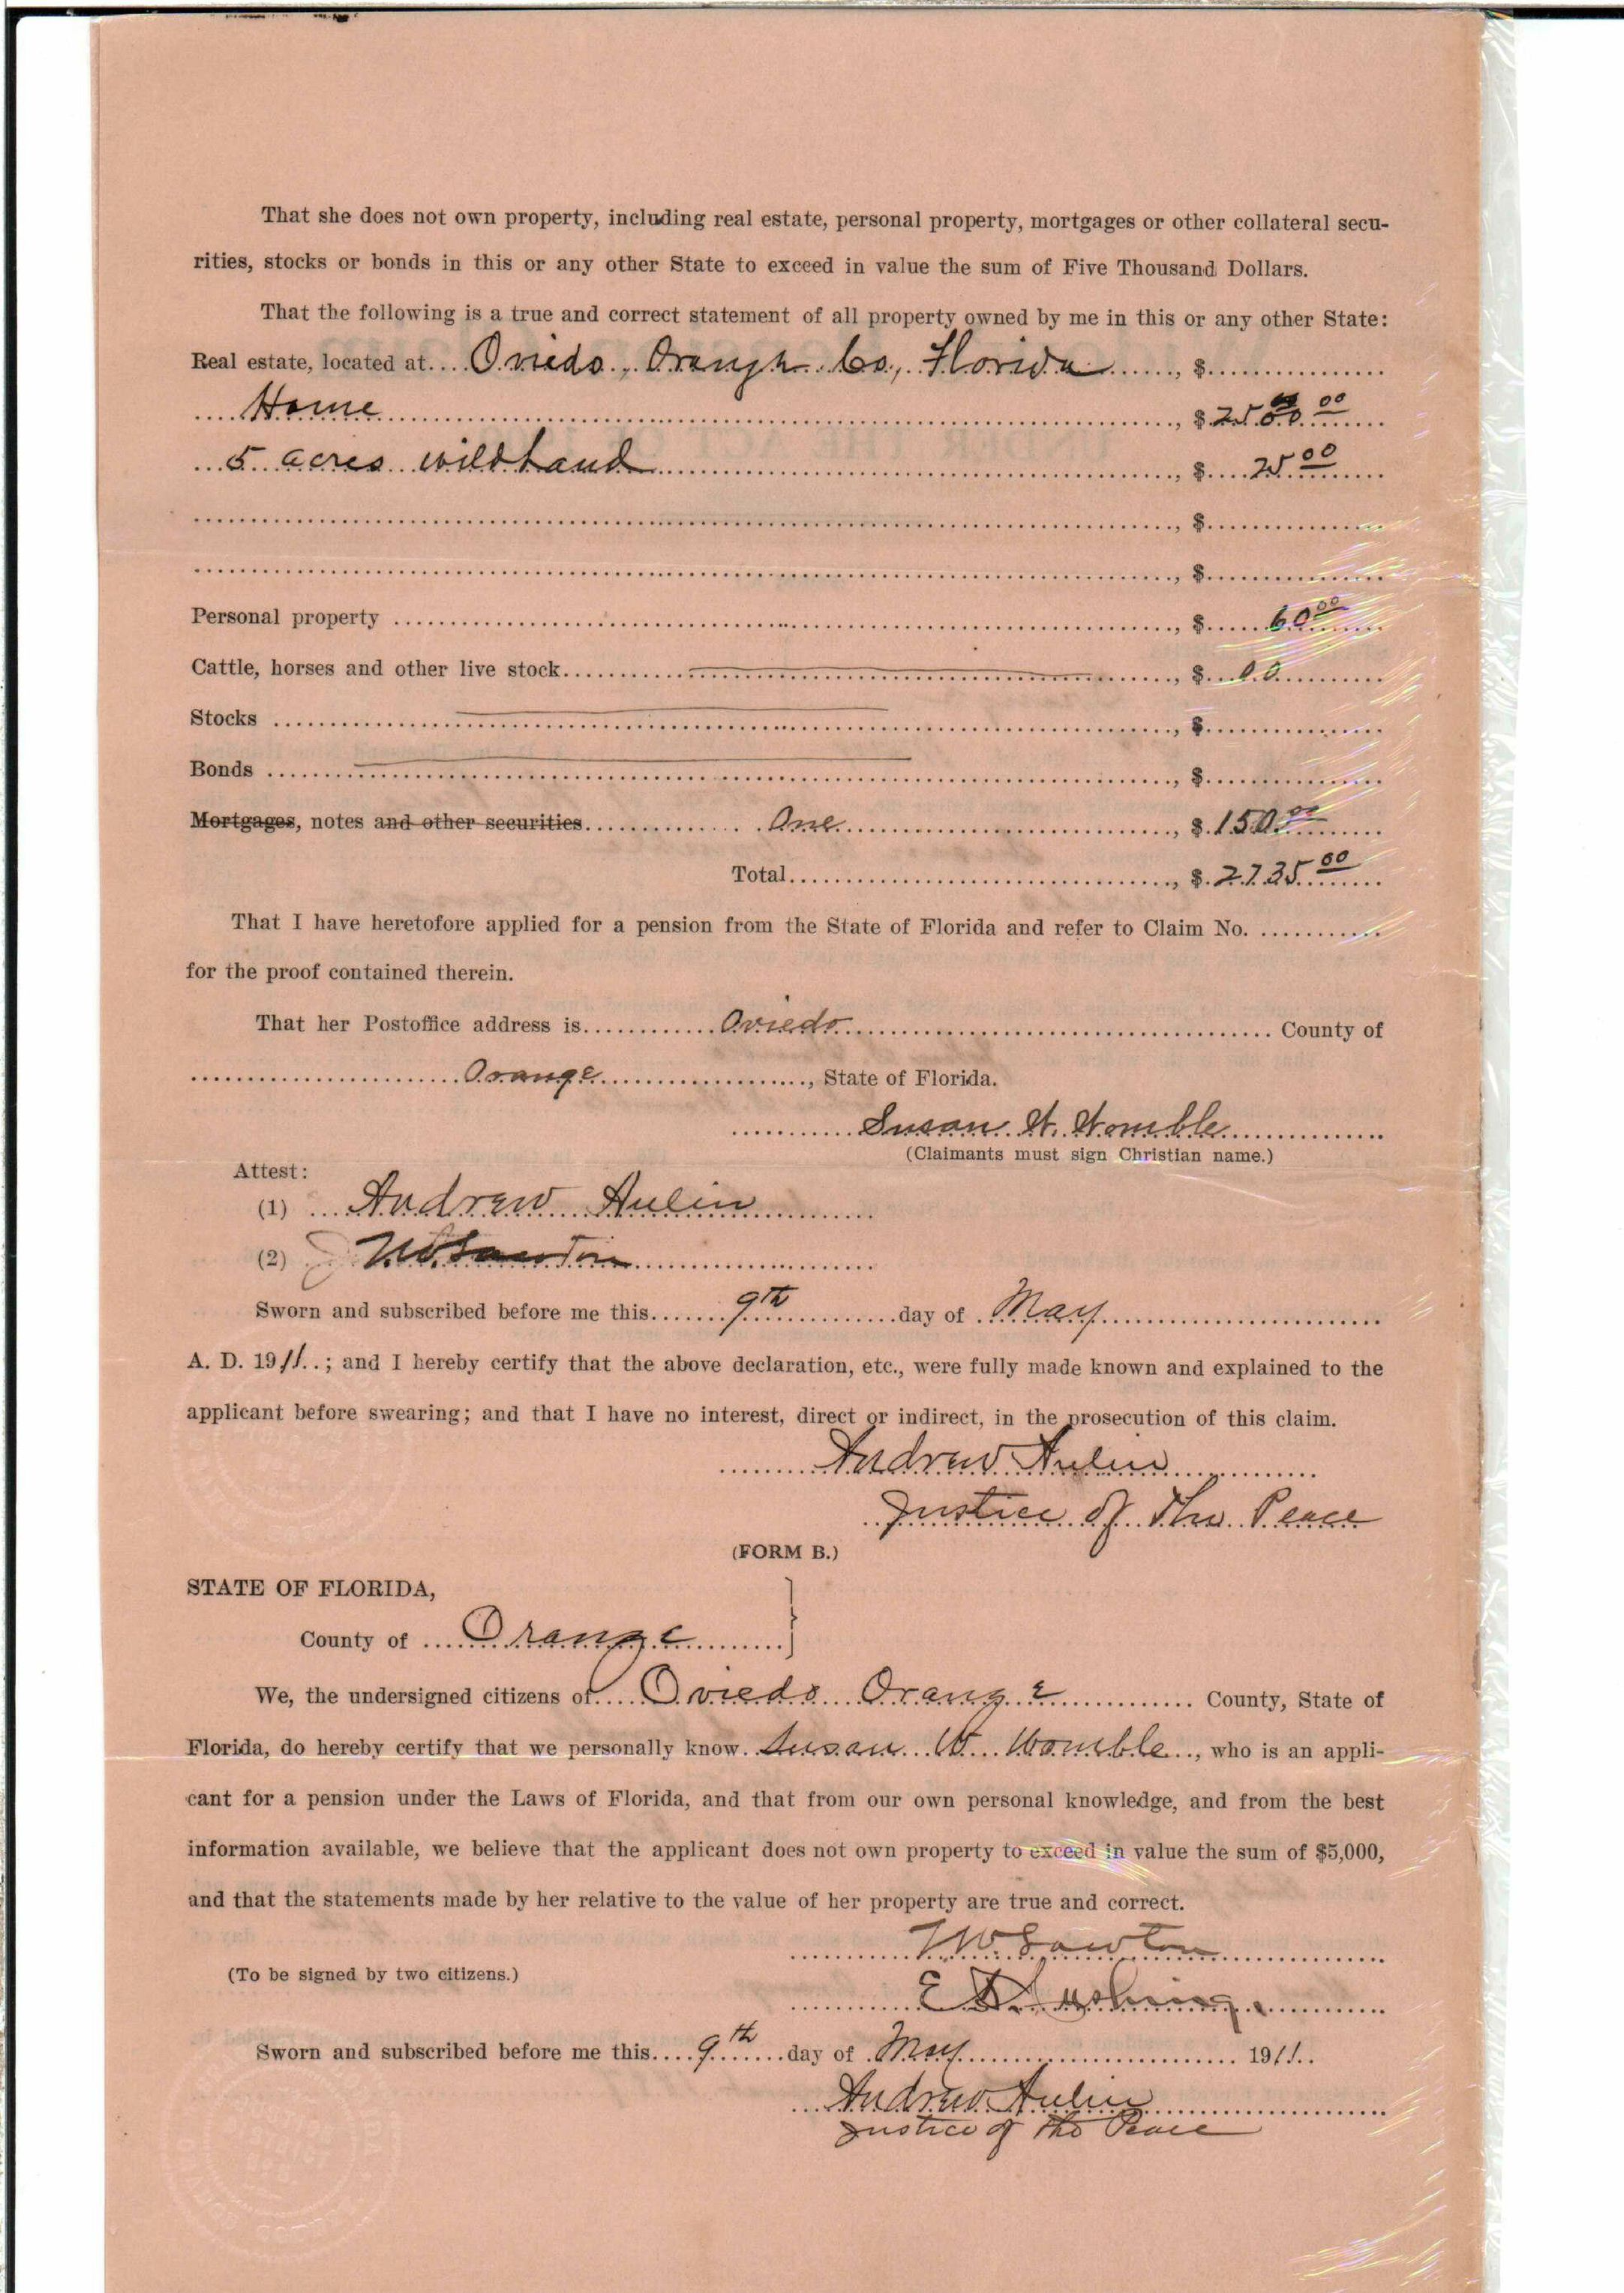 That she does not own property, including real estate, personal property, mortgages or other collateral secu-
rities, stocks or bonds in this or any other State to exceed in value the sum of Five Thousand Dollars.
That the following is a true and correct statement of all property owned by me in this or any other State:
Real estate, located at.... Oviedo, Orange Co, Florida ......, $................
....Home................................................, $ 2500 00
...5 acres wild land................................................, $.... 25 00
................................................, $................
................................................, $................
Personal property ................................................, $...... 60 00
Cattle, horses and other live stock................................................, $... 00
Stocks ................................................, $................
Bonds ................................................, $................
Mortgages, notes and other securities.............. One ........................, $ 150 00
Total................................, $ 2735 00
That I have heretofore applied for a pension from the State of Florida and refer to Claim No. ...........
for the proof contained therein.
That her Postoffice address is............ Oviedo ................................ County of
........................ Orange ...................., State of Florida.
........... Susan W. Womble ...............
(Claimants must sign Christian name.)
Attest:
(1) ... Andrew Aulin ...........
(2) T W Lawton ......................
Sworn and subscribed before me this....... 9th ............day of . May ........................
A. D. 1911..; and I hereby certify that the above declaration, etc., were fully made known and explained to the
applicant before swearing; and that I have no interest, direct or indirect, in the prosecution of this claim.
......... Andrew Aulin ..............
Justice of The Peace
(FORM B.)
STATE OF FLORIDA,
County of .... Orange .........
We, the undersigned citizens of.... Oviedo Orange ............ County, State of
Florida, do hereby certify that we personally know.. Susan W. Womble..., who is an appli-
cant for a pension under the Laws of Florida, and that from our own personal knowledge, and from the best
information available, we believe that the applicant does not own property to exceed in value the sum of $5,000,
and that the statements made by her relative to the value of her property are true and correct.
........... T W Lawton ................
(To be signed by two citizens.)
........... E ...............
Sworn and subscribed before me this.... 9th ......day of . May ........................ 1911..
... Andrew Aulin ........................
Justice of the Peace